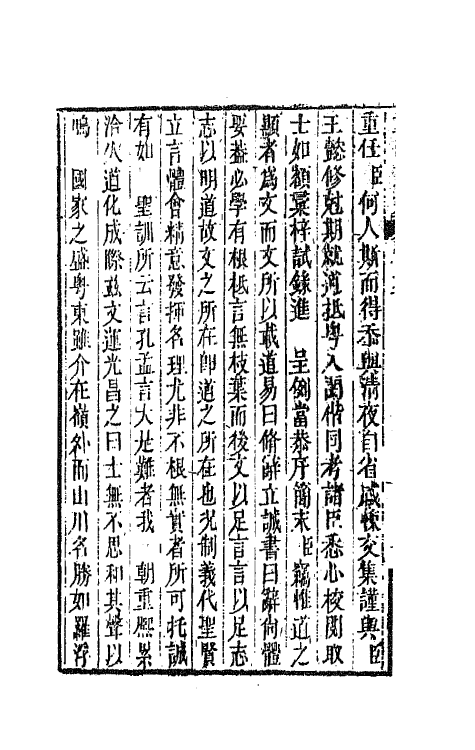 重任臣何人斯而得忝與清夜自省感悚交集謹與臣
王懿修尅期就道抵粵入闈偕同考諸臣悉心校閱取
士如額彙梓試錄進 呈例當恭序簡末臣竊惟道之
顯者為文而文所以載道易曰脩辭立誠書曰辭尚體
要蓋必學有根柢言無枝葉而後文以足言言以足志
志以明道故文之所在即道之所在也況制義代聖賢
立言體會精意發揮名理尤非不根無實者所可托誠
有如 聖訓所云言孔孟言大是難者我 朝重熙累
洽久道化成際茲文運光昌之日士無不思和其聲以
鳴 國家之盛粵東雖介在嶺外而山川名勝如羅浮